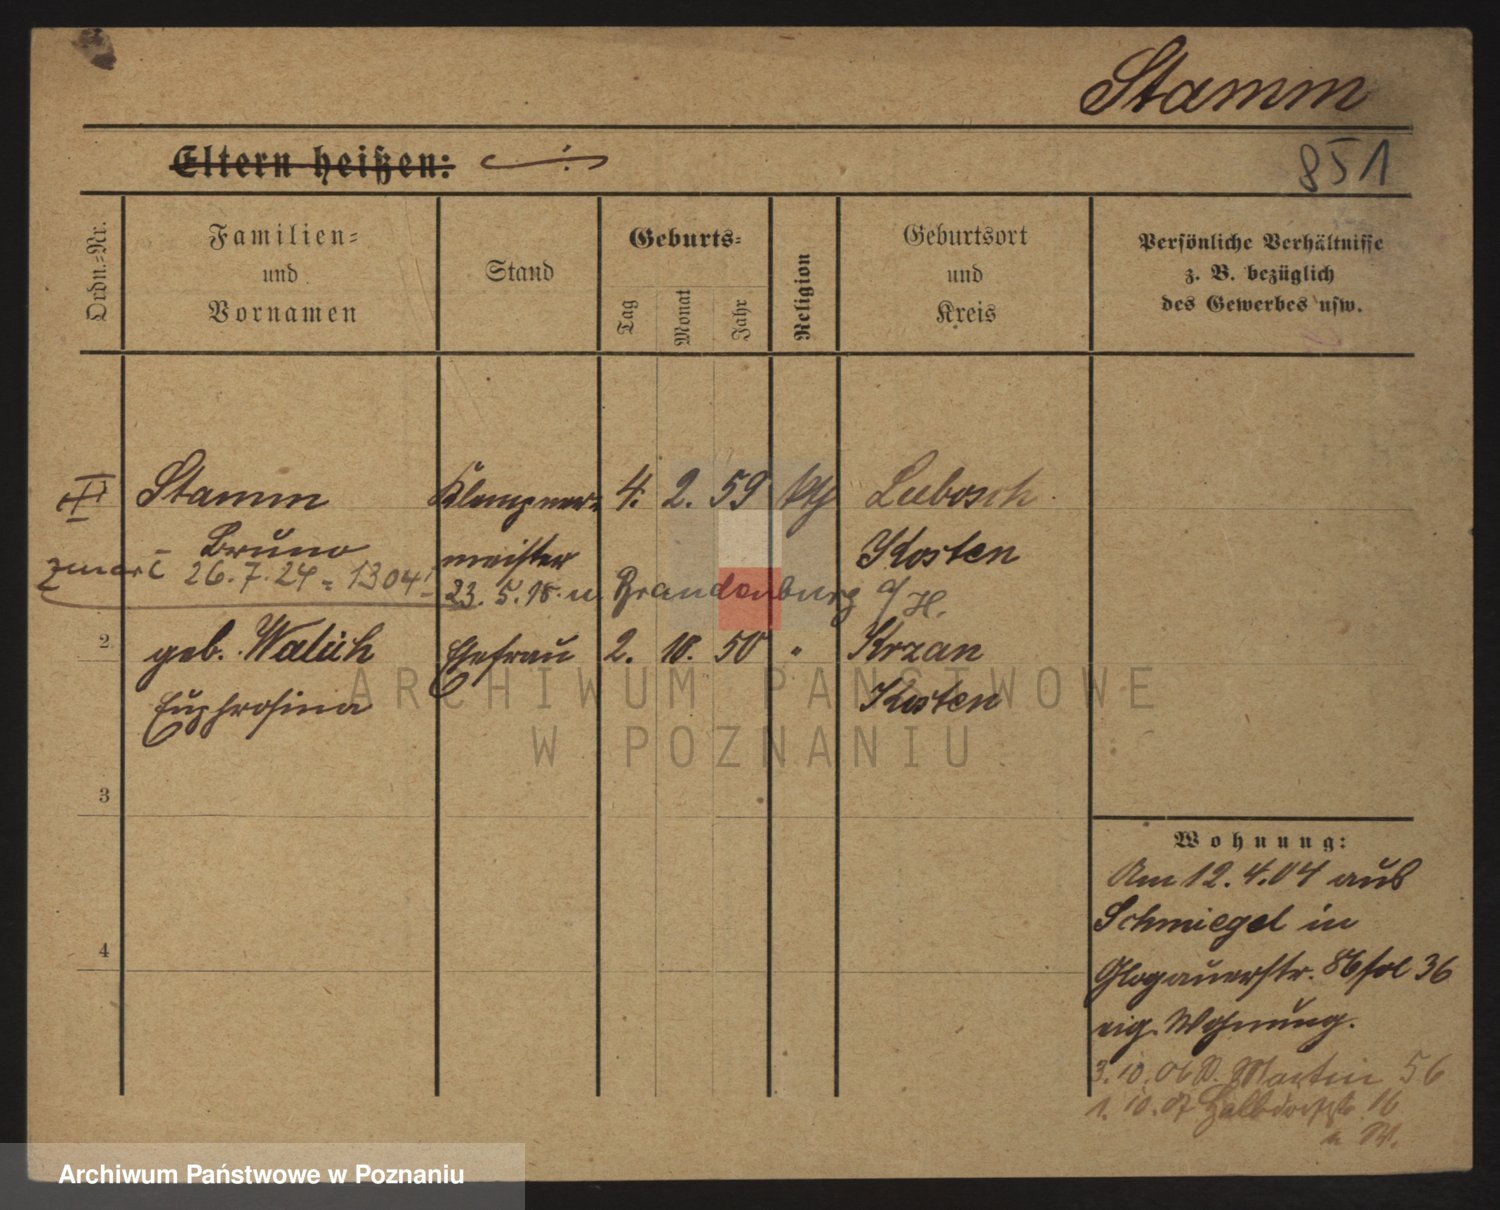 Stamm
Eltern heißen:
851
Ordn.=Nr.
Familien=
und
Vornamen
Stand
Geburts=
Tag
Monat
Jahr
Religion
Geburtsort
und
Kreis
Persönliche Verhältnisse
z. B. bezüglich
des Gewerbes usw.
Stamm Klempner= 4. 2. 59 kth Lubosch
Bruno meister Kosten
zmarł 26.7.24 = 1304
23. 5. 18. n. Brandenburg a/H.
2 geb. Walich Ehefrau 2. 10. 50 " Krzan
Euphrosina Kosten
3
4
Wohnung:
Am 12.4.04 aus
Schmiegel in
Glogauerstr. 86 fol 36
eig. Wohnung.
3. 10. 06 Martin 56
1. 10. 07 Halbdorfstr. 16
ARCHIWUM PAŃSTWOWE
W POZNANIU
Archiwum Państwowe w Poznaniu